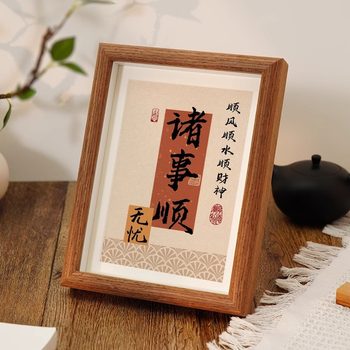 诸事顺
顺风顺水顺财神
无忧